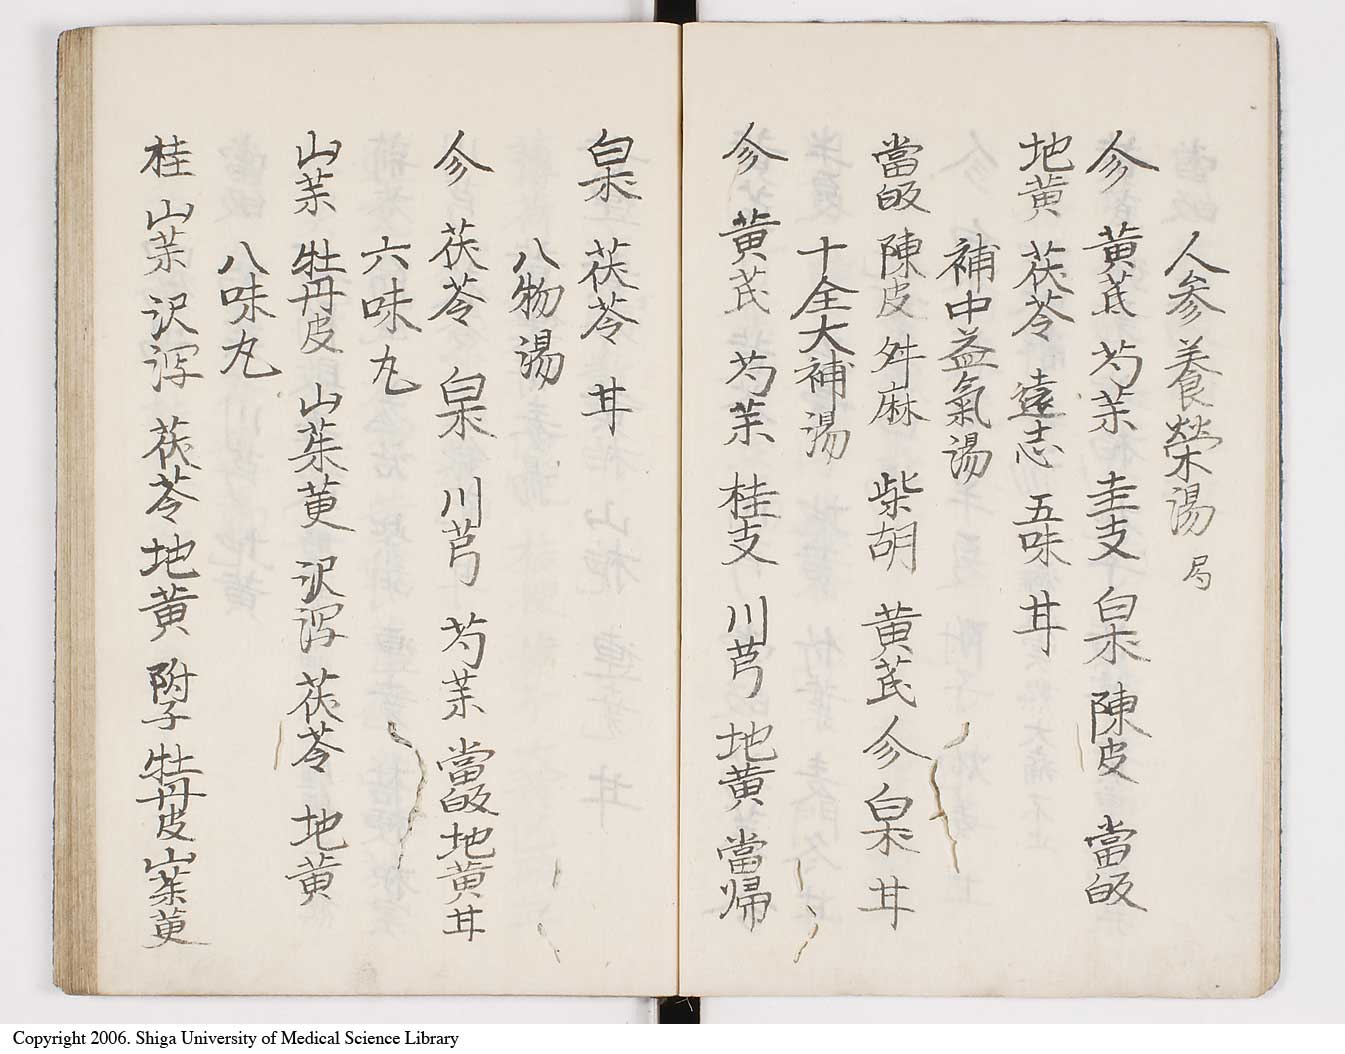 人参養榮湯 局
参 黄芪 芍茱 圭支 白朮 陳皮 當皈
地黄 茯苓 遠志 五味 甘
補中益氣湯
當皈 陳皮 舛麻 柴胡 黄芪 参 白朮 甘
十全大補湯
参 黄芪 芍茱 桂支 川芎 地黄 當帰
白朮 茯苓 甘
八物湯
参 茯苓 白朮 川芎 芍茱 當皈 地黄 甘
六味丸
山茱 牡丹皮 山茱萸 沢泻 茯苓 地黄
八味丸
桂 山茱 沢泻 茯苓 地黄 附子 牡丹皮 山茱萸
Copyright 2006. Shiga University of Medical Science Library